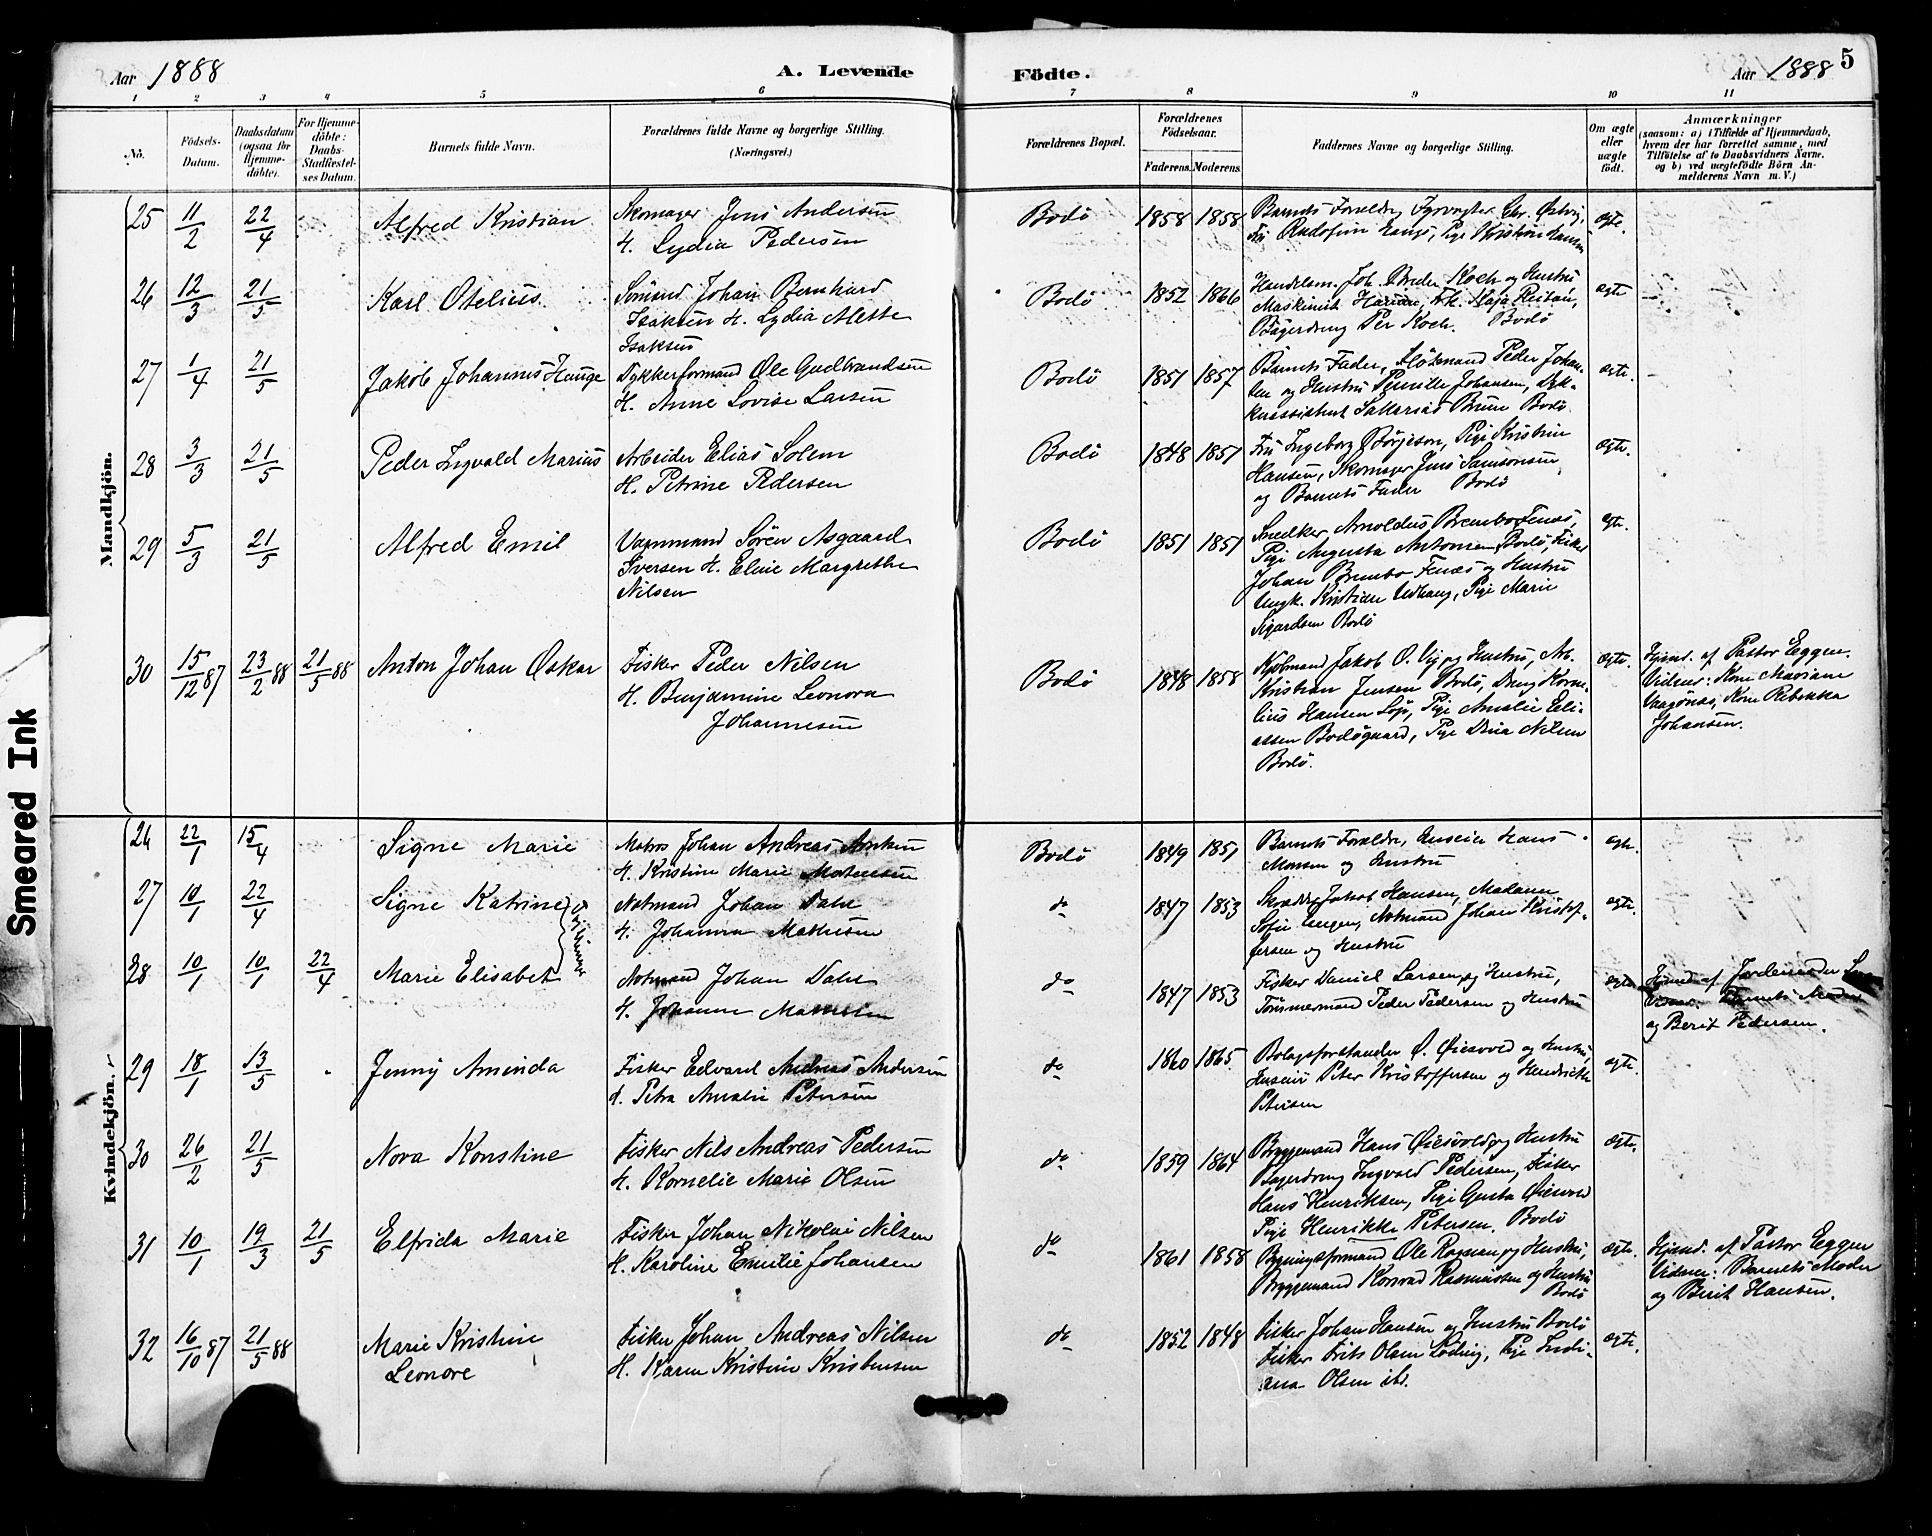 Aar 1888
A. Levende Födte.
Aar 1888 5
1 2 3 4 5 6 7 8 9 10 11
No.
Födsels-Datum.
Daabsdatum (ogsaa for Hjemme-döbte).
For Hjemme-döbte: Daabs-Stadfæstel-ses Datum.
Barnets fulde Navn.
Forældrenes fulde Navne og borgerlige Stilling. (Næringsvei.)
Forældrenes Bopæl.
Forældrenes Födselsaar.
Faderens. Moderens.
Faddernes Navne og borgerlige Stilling.
Om ægte eller uægte födt.
Anmærkninger
(saasom: a) i Tilfælde af Hjemmedaab,
hvem der har forrettet samme, med
Tilföielse af to Daabsvidners Navne,
og b) ved uægtefödte Börn An-
melderens Navn m. V.)
Mandkjön.
25 11/2 22/4 Alfred Kristian
Skomager Jens Andersen
H. Lydia Pedersen
Bodø 1858 1858
Barnets Forældre, Fyrvogter Chr.
Pige Kristine Hansen
ægte.
26 12/3 21/5 Karl Otelius
Sømand Johan Bernhard
Isaksen H. Lydia Alette
Isaksen
Bodø 1852 1866
Handelsm. Joh. Koch og Hustru
Maskinist Kaja
Per Koch. Bodø
ægte
27 1/4 21/5 Jakob Johannes Hauge
Dykkerformand Ole Gudbrandsen
H. Anne Lovise Larsen
Bodø 1851 1857
Barnets Fader, Peder Johan-
sen og Hustru Pernille Johansen, Dyk-
kerassistent Sakarias Bruun Bodø
ægte.
28 3/3 21/5 Peder Ingvald Marius
Arbeider Elias Solem
H. Petrine Pedersen
Bodø 1848 1851
Fru Ingeborg Børjeson, Pige Kristine
Hansen, Skomager Jens Samsonsen
og Barnets Fader Bodø
ægte.
29 5/3 21/5 Alfred Emil
Vognmand Søren Asgaard
Iversen H. Eline Margrethe
Nilsen
Bodø 1851 1851
Snedker Arnoldus Brembo Fenæs,
Pige Augusta Antonsen Bodø, Fisker
Johan Brembo Fenæs og Hustru
Ungk. Kristian Pige Marie
Sigardsen Bodø
ægte.
30 15/12 87 23/2 88 21/5 88 Anton Johan Oskar
Fisker Peder Nilsen
H. Benjamine Leonora
Johannesen
Bodø 1848 1858
Kjøbmand Jakob O. Vig og Hustru, Arb.
Kristian Jensen Bodø, Dreng Korne-
lius Hansen Løp, Pige Amalie Eeli-
assen Bodøgaard, Pige Dina Nilsen
Bodø.
ægte.
Hjemd. af Pastor Eggen.
Vidner: Kone Mariane
Vaagønes, Kone Rebekka
Johansen.
Kvindekjön.
26 22/1 15/4 Signe Marie
Matros Johan Andreas Arntsen
H. Kristine Marie Mortensen
Bodø 1849 1851
Barnets Forældre, Huseier Hans
Monsen og Hustru
ægte.
27 10/1 22/4 Signe Katrine
Tvillinger
Notmand Johan Dahl
H. Johanna Mathisen
do 1847 1853
Skrædder Jakob Hansen, Madame
Sofie Notmand Johan Kristof-
fersen og Hustru
ægte.
28 10/1 10/1 22/4 Marie Elisabet
Notmand Johan Dahl
H. Johanna Mathisen
do 1847 1853
Fisker Daniel Larsen og Hustru,
Tømmermand Peder Pedersen og Hustru
ægte
Hjemd. af Jordemoder
Barnets Moder
og Berit Pedersen.
29 18/1 13/5 Jenny Aminda
Fisker Edvard Andreas Andersen
H. Petra Amalie Petersen
do 1860 1865
Bolagsforstander O. Øiesvold og Hustru,
Huseier Peter Kristoffersen og Hendrikke
Petersen
ægte.
30 26/2 21/5 Nova Konstine
Fisker Nils Andreas Pedersen
H. Kornelie Marie Olsen
do 1859 1864
Bryggemand Hans Øiesvold og Hustru
Bagerdreng Ingvald Pedersen, Fisker
Hans Henriksen, Pige Gusta Øiesvold
Pige Henrikke Petersen. Bodø
ægte.
31 10/1 19/3 21/5 Elfrida Marie
Fisker Johan Nikolai Nilsen
H. Karoline Emilie Johansen
do 1861 1858
Bygningsformand Ole og Hustru,
Bryggemand Konrad Rasmussen og Hustru
Bodø
ægte.
Hjemd. af Pastor Eggen
Vidner: Barnets Moder
og Berit Hansen.
32 16/10 87 21/5 88 Marie Kristine
Leonore
Fisker Johan Andreas Nilsen
H. Maren Kristine Kristensen
do 1852 1848
Fisker Johan Hansen og Hustru Bodø
Fisker Frits Olsen Løding, Pige Indi-
ana Olsen ibd.
ægte.
Smeared Ink